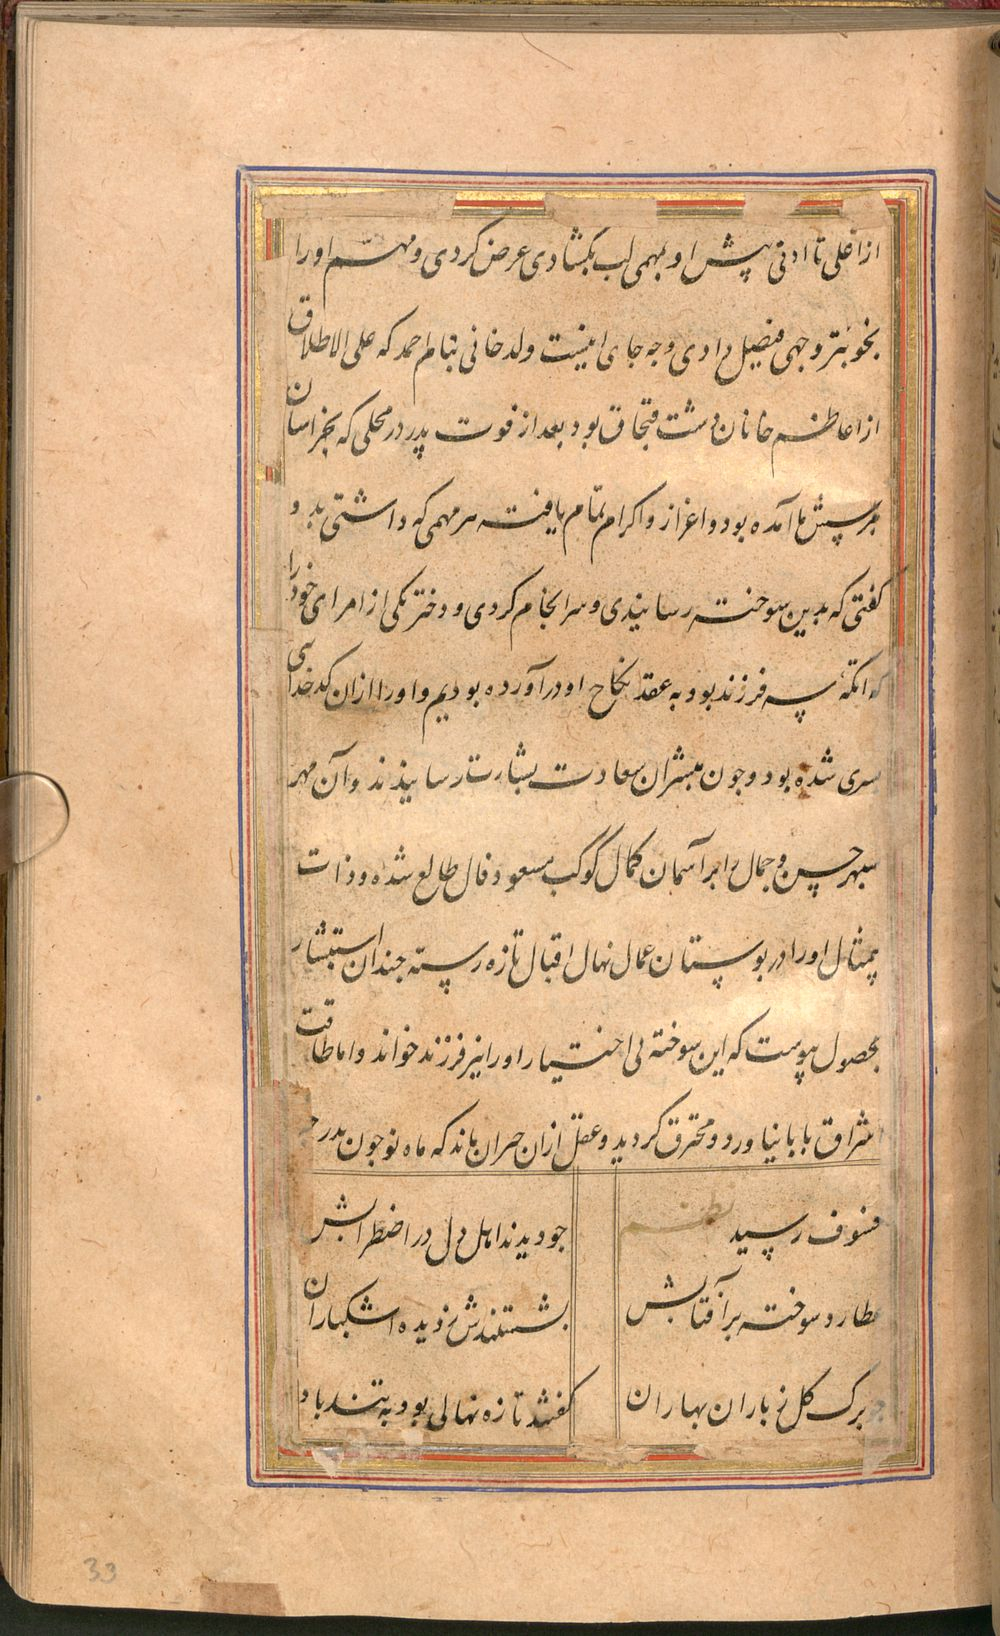 از اعلی تا ادنی پیش او بمهمی لب بگشادی عرض کردی و مهم او را
بخوبتر وجهی فیصل دادی و چه جای اینست ولد خانی بنام احمد که علی الاطلاق
از اعاظم خانان دشت قبچاق بود بعد از فوت پدر در محلی که بخراسان
پیش ما آمده بود و اعزاز و اکرام تمام یافته هر مهمی که داشتی بدو
گفتی که بدین سوخته رسانیدی و سرانجام کردی و دختر یکی از امرای خود را
که انکه فرزند بود به عقد نکاح او درآورده بودیم و او را ازان کدخدایی
سری شده بود و چون مبشران سعادت بشارت رسانیدند و آن مهر
سپهر حسن و جمال را بر آسمان کمال کوکب مسعود فال طالع شده و ذات
بمثال او را در بوستان عمال نهال اقبال تازه رسته چندان استبشار
بحصول پیوست که این سوخته بی اختیار او را نیز فرزند خواند و اما طاقت
اشراق بابا نیاورد و محترق کردید و عقل ازان حیران ماند که ماه نو چون بدر
خسوف رسید نظم جو دیدند اهل دل در اضطرابش
عطارد سوخته بر آفتابش بشستندش ز دیده اشکباران
چو برک کل ز باران بهاران کفتند تازه نهالی بود به تند باد